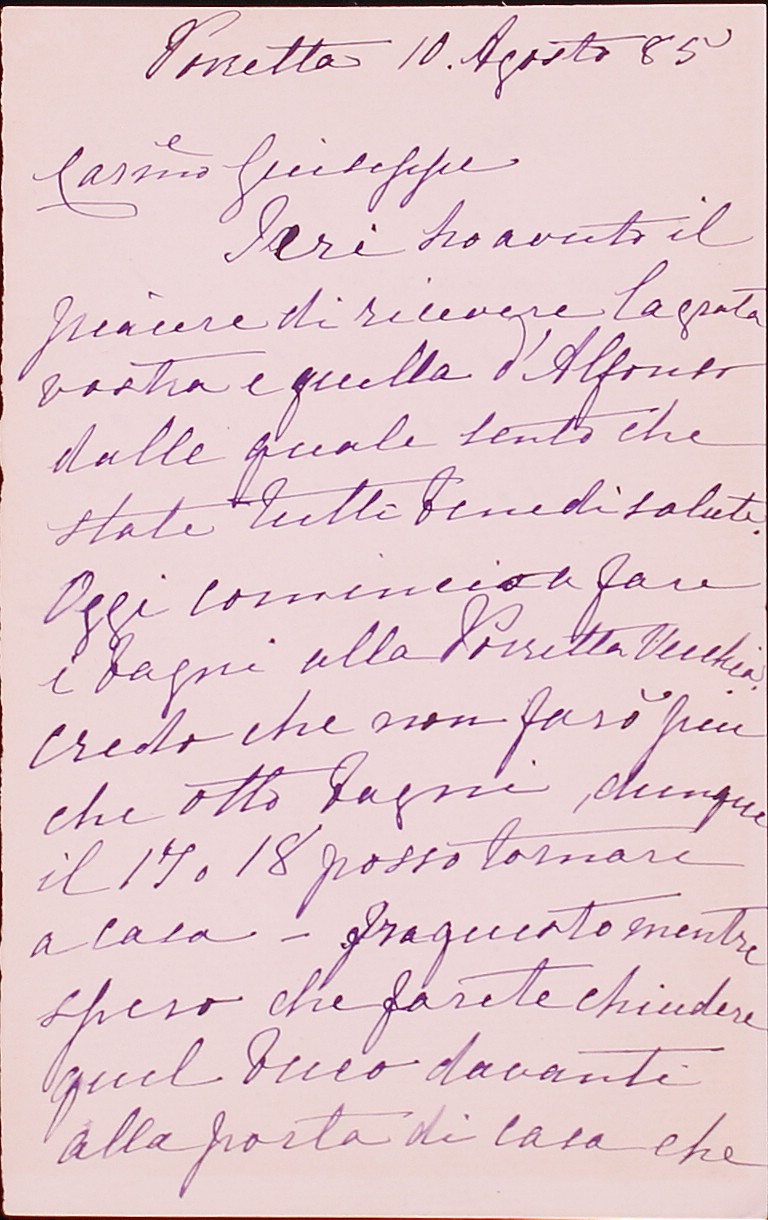 Porretta 10. Agosto 85
Carmo Giuseppe
Ieri ho avuto il
piacere di ricevere la grata
vostra e quella d'Alfonso
dalle quale sento che
state tutti bene di salute.
Oggi comincio a fare
i bagni alla Porretta Vecchia.
credo che non farò piu
che otto bagni, dunque
il 17 o 18 posso tornare
a casa – fra questo mentre
spero che farete chiudere
quel buco davanti
alla porta di casa che